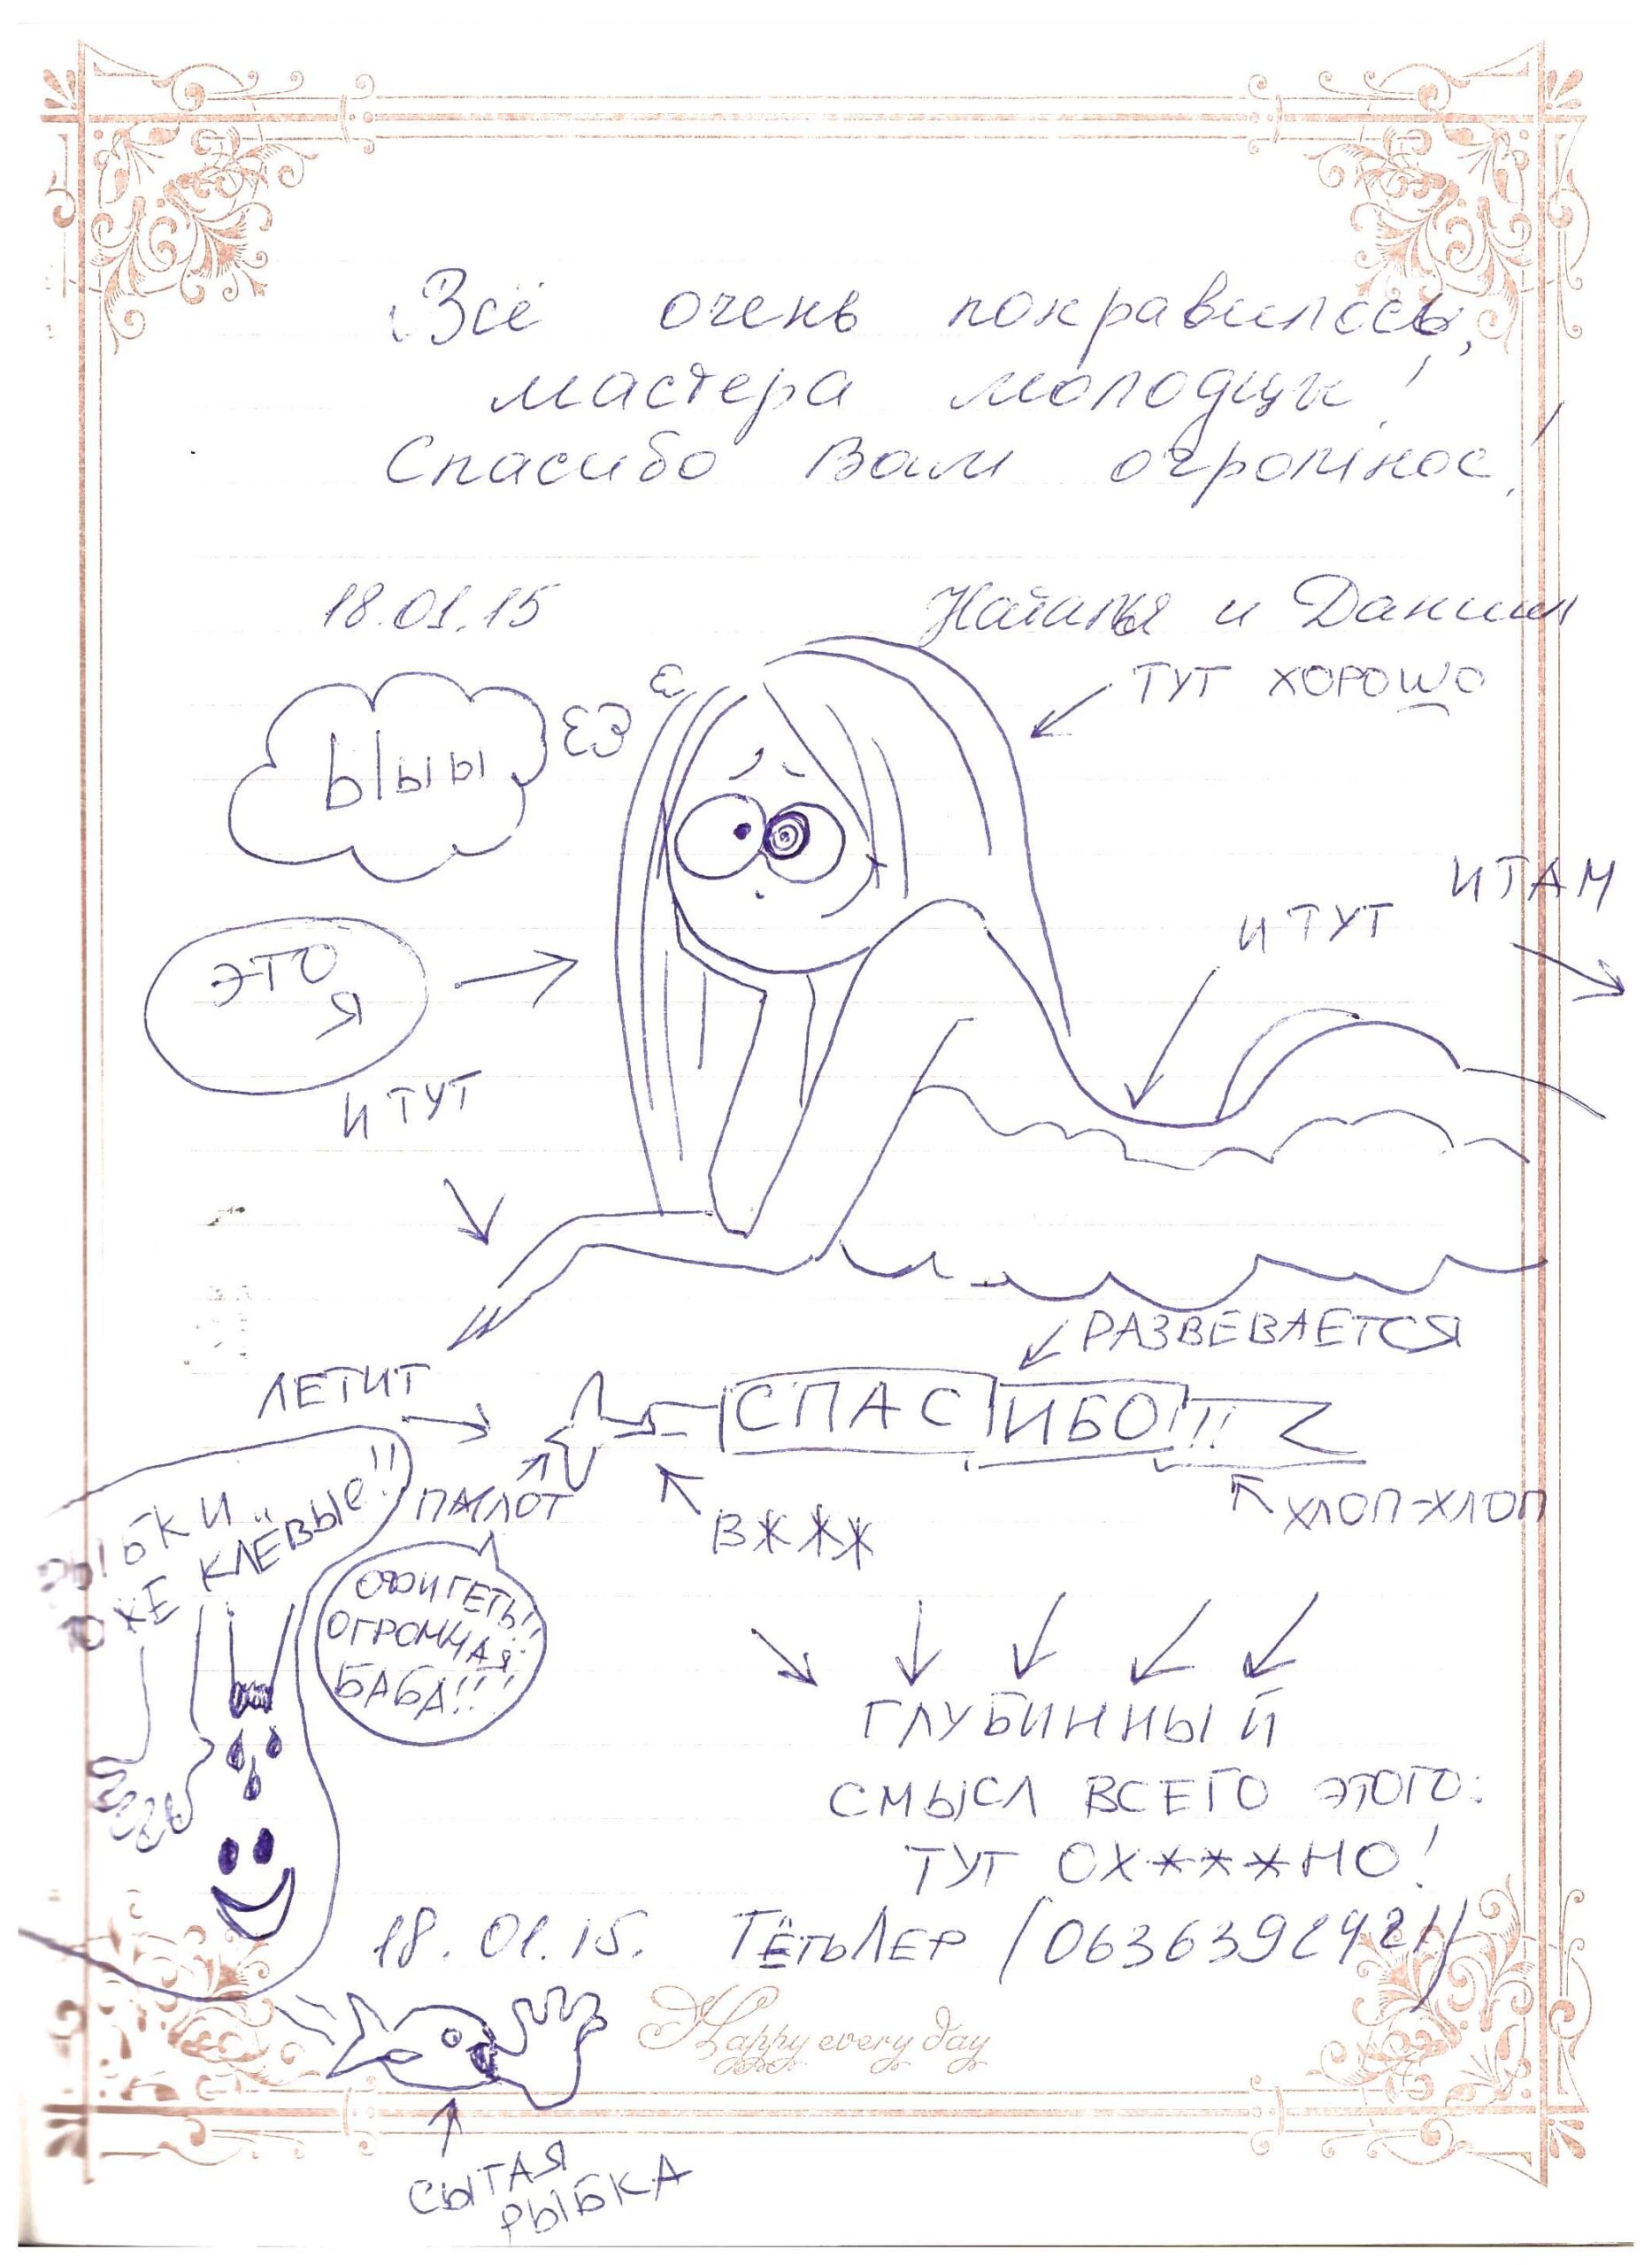 Всё очень понравилось,
мастера молодцы!
Спасибо Вам огромное!
18.01.15
Наталья и Даниил
ТУТ ХОРОШО
Ыыыы
ЭТО
Я
И ТУТ
И ТАМ
И ТУТ
РАЗВЕВАЕТСЯ
ЛЕТИТ
СПАСИБО!!!
ПАЛОТ
ВЖЖЖ
ХЛОП-ХЛОП
РЫБКИ
ТОЖЕ КЛЁВЫЕ!!
ОФИГЕТЬ!!
ОГРОМНАЯ
БАБА!!!
ГЛУБИННЫЙ
СМЫСЛ ВСЕГО ЭТОГО:
ТУТ ОХ***НО!
18.01.15. ТЁтьЛЕР /0636392421/
Happy every day
СЫТАЯ
РЫБКА